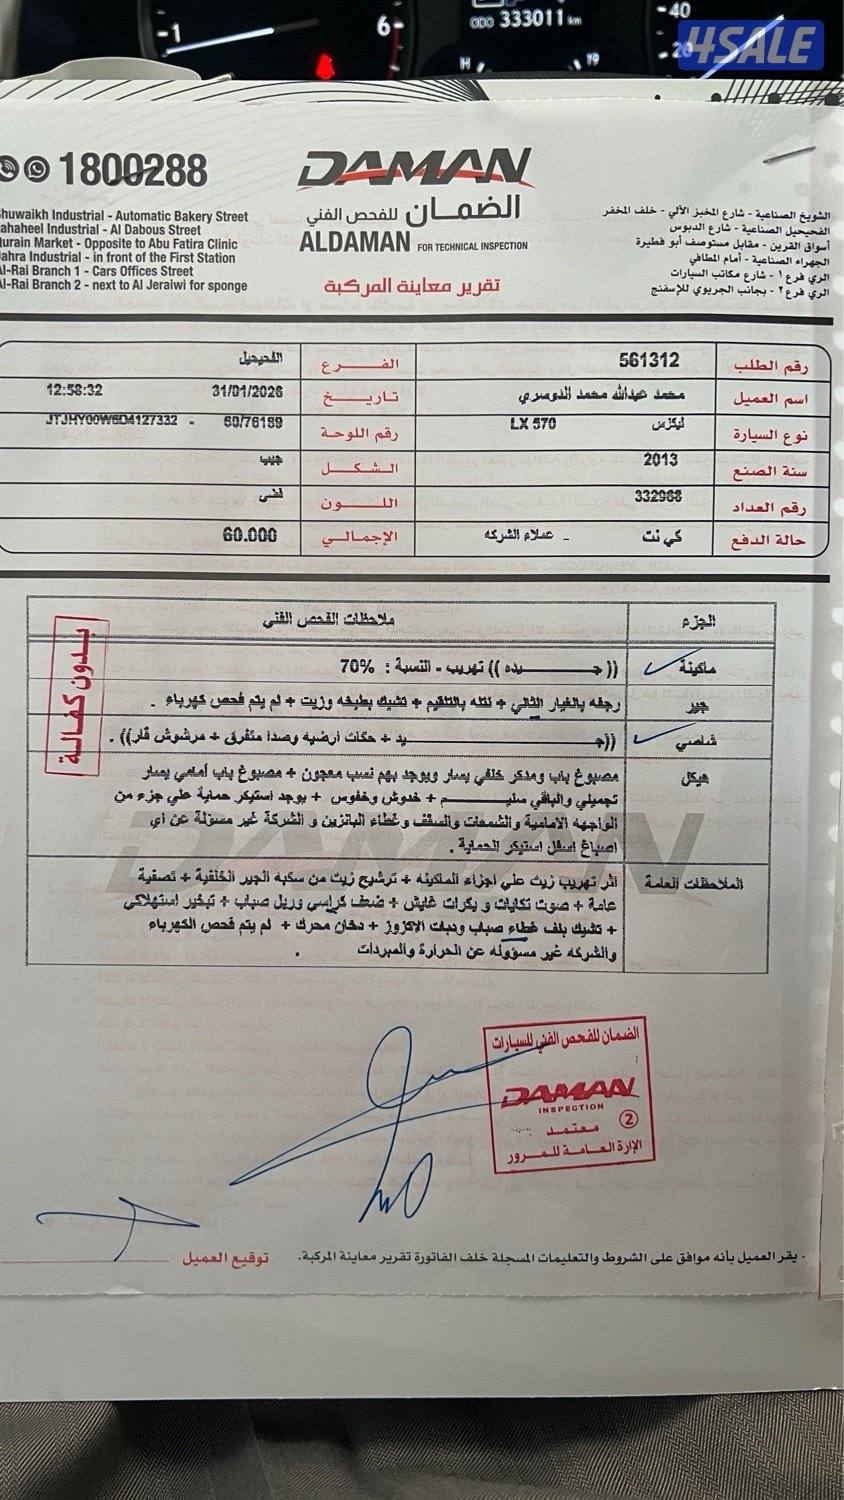 -1
6
ODO 333011 km
H
-40
20
4SALE
1800288
DAMAN
الضمان للفحص الفني
ALDAMAN FOR TECHNICAL INSPECTION
تقرير معاينة المركبة
huwaikh Industrial - Automatic Bakery Street
ahaheel Industrial - Al Dabous Street
urain Market - Opposite to Abu Fatira Clinic
ahra Industrial - in front of the First Station
Al-Rai Branch 1 - Cars Offices Street
Al-Rai Branch 2 - next to Al Jeraiwi for sponge
الشويخ الصناعية - شارع المخبز الآلي - خلف المخفر
الفحيحيل الصناعية - شارع الدبوس
أسواق القرين - مقابل مستوصف أبو فطيرة
الجهراء الصناعية - أمام المطافي
الري فرع ١ - شارع مكاتب السيارات
الري فرع ٢ - بجانب الجريوي للإسفنج
رقم الطلب 561312 الفرع الفحيحيل
اسم العميل محمد عبدالله محمد الدوسري تاريخ 31/01/2026 12:58:32
نوع السيارة ليكزس LX 570 رقم اللوحة 60/76189 - JTJHY00W6D4127332
سنة الصنع 2013 الشكل جيب
رقم العداد 332968 اللون فضي
حالة الدفع كي نت - عملاء الشركه الإجمالي 60.000
الجزء ملاحظات الفحص الفني
بدون كفالة
ماكينة ((جيده)) تهريب - النسبة : 70%
جير رجفه بالغيار الثالي + نتله بالتقيم + تشيك بطيخه وزيت + لم يتم فحص كهرباء .
شاصي ((جيد + حكات ارضيه وصدا متفرق + مرشوش قار)) .
هيكل مصبوغ باب ومدكر خلفي يسار ويوجد بهم نسب معجون + مصبوغ باب أمامي يسار
تجميلي والباقي سليم + خدوش وخفوس + يوجد استيكر حماية علي جزء من
الواجهه الامامية والشمعات والسقف وغطاء البانزين و الشركة غير مسؤلة عن اي
اصباغ اسفل استيكر الحماية .
الملاحظات العامة اثر تهريب زيت علي اجزاء الماكينه + ترشيح زيت من سكبه الجير الخلفية + تصفية
عامة + صوت تكايات و بكرات غايش + ضعف كراسي وريل صباب + تبخير استهلاكي
+ تشيك بلف غطاء صباب ودبات الاكزوز + دخان محرك + لم يتم فحص الكهرباء
والشركه غير مسؤوله عن الحرارة والمبردات .
الضمان للفحص الفني للسيارات
DAMAN
INSPECTION
معتمد 2
الإرارة العـامـة للمـرور
- يقر العميل بأنه موافق على الشروط والتعليمات المسجلة خلف الفاتورة تقرير معاينة المركبة. توقيع العميل